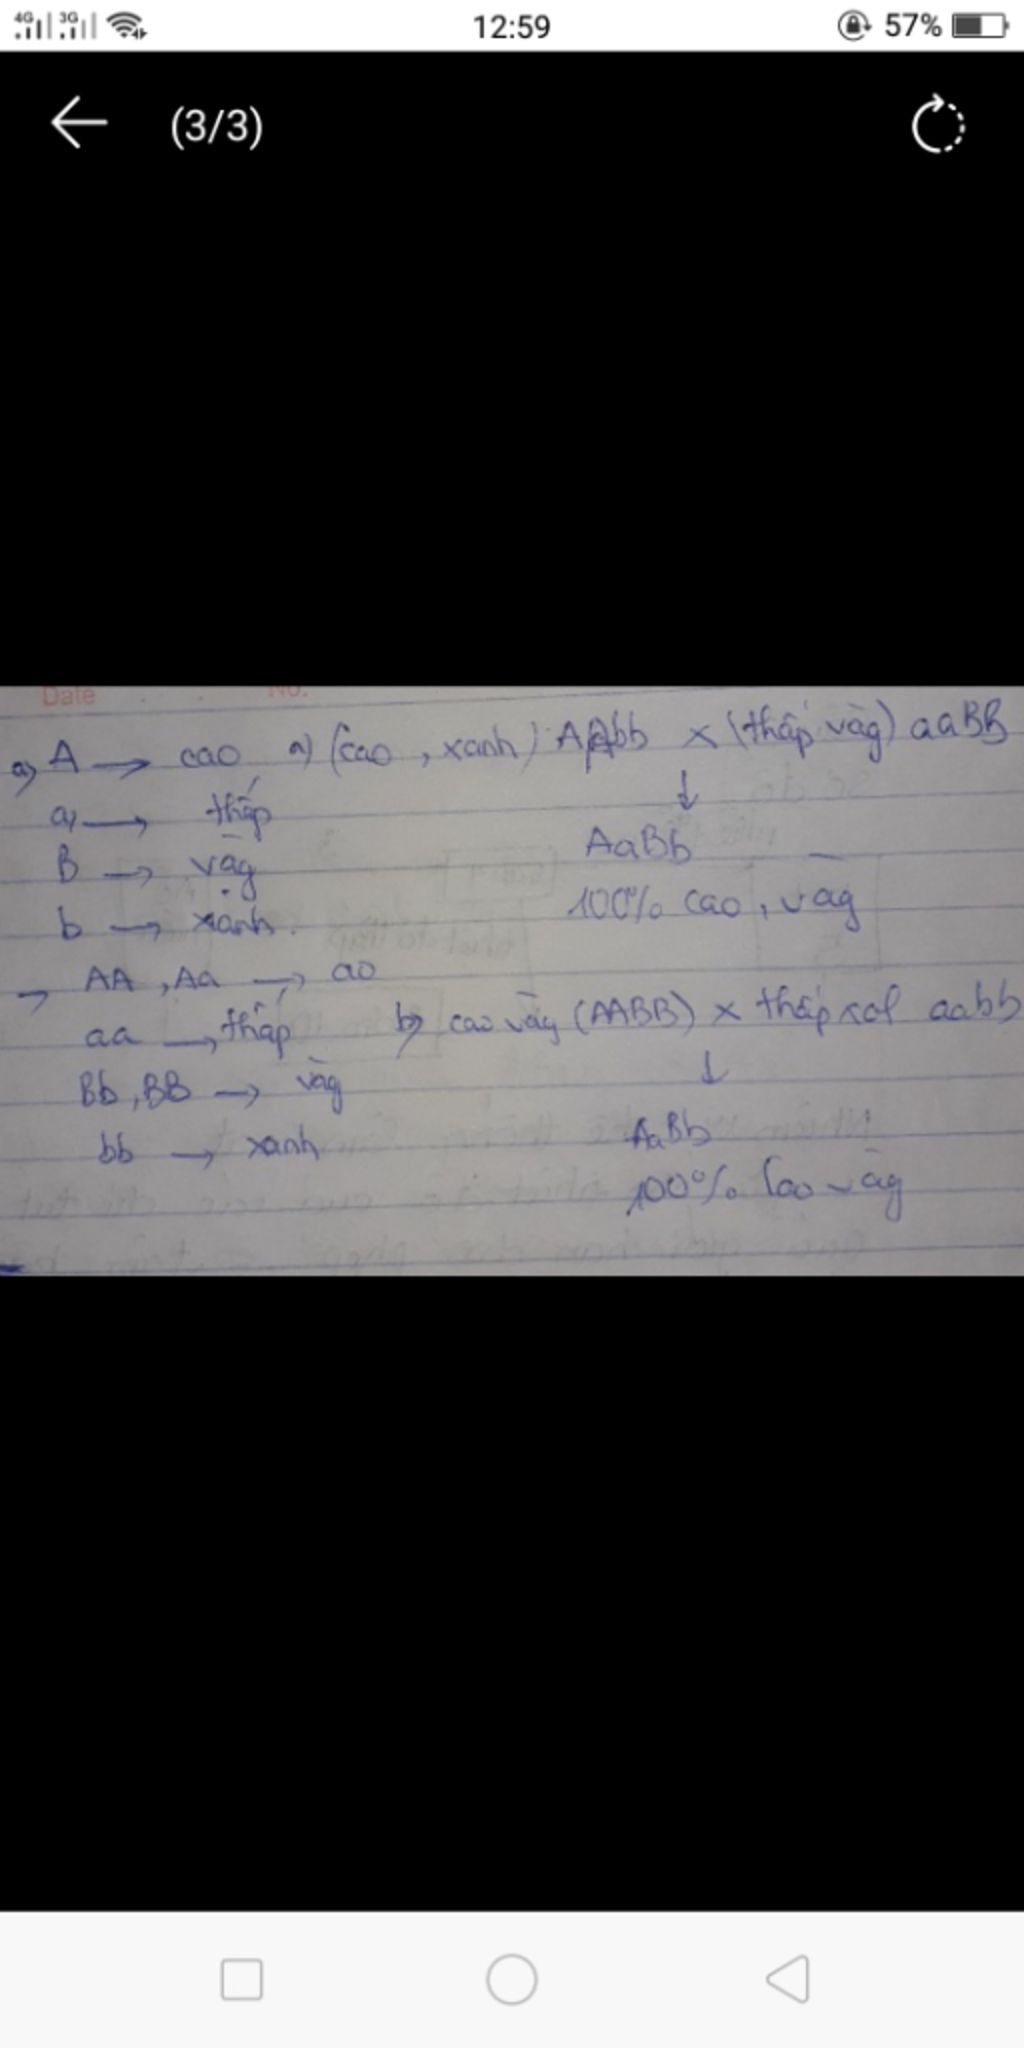 4G 3G 12:59 57%
(3/3)
Date No.
a, A → cao a) (cao, xanh) AAbb × (thấp vàg) aaBB
a → thấp ↓
B → vàg AaBb
b → xanh. 100% cao, vàg
→ AA, Aa → ao
aa → thấp b) cao vàg (AABB) × thấp aabb
Bb, BB → vàg ↓
bb → xanh AaBb
100% Cao vàg